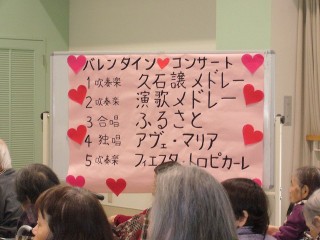 バレンタイン♥コンサート
1 吹奏楽 久石譲メドレー
2 吹奏楽 演歌メドレー
3 合唱 ふるさと
4 独唱 アヴェ・マリア
5 吹奏楽 フィエスタ・トロピカーレ